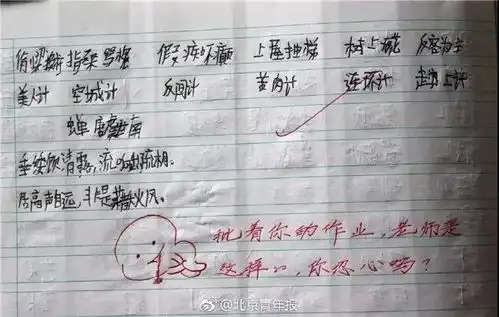 偷梁换柱 指桑骂槐 假痴不癫 上屋抽梯 树上开花 反客为主
美人计 空城计 反间计 苦肉计 连环计 走为上计
蝉 唐 虞世南
垂緌饮清露,流响出疏桐。
居高声自远,非是藉秋风。
批着你的作业,老师是
这样的,你忍心吗?
@北京青年报